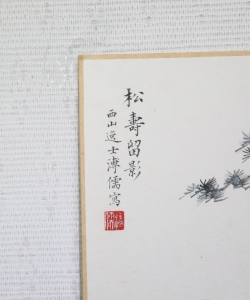 松壽留影
西山逸士溥儒寫